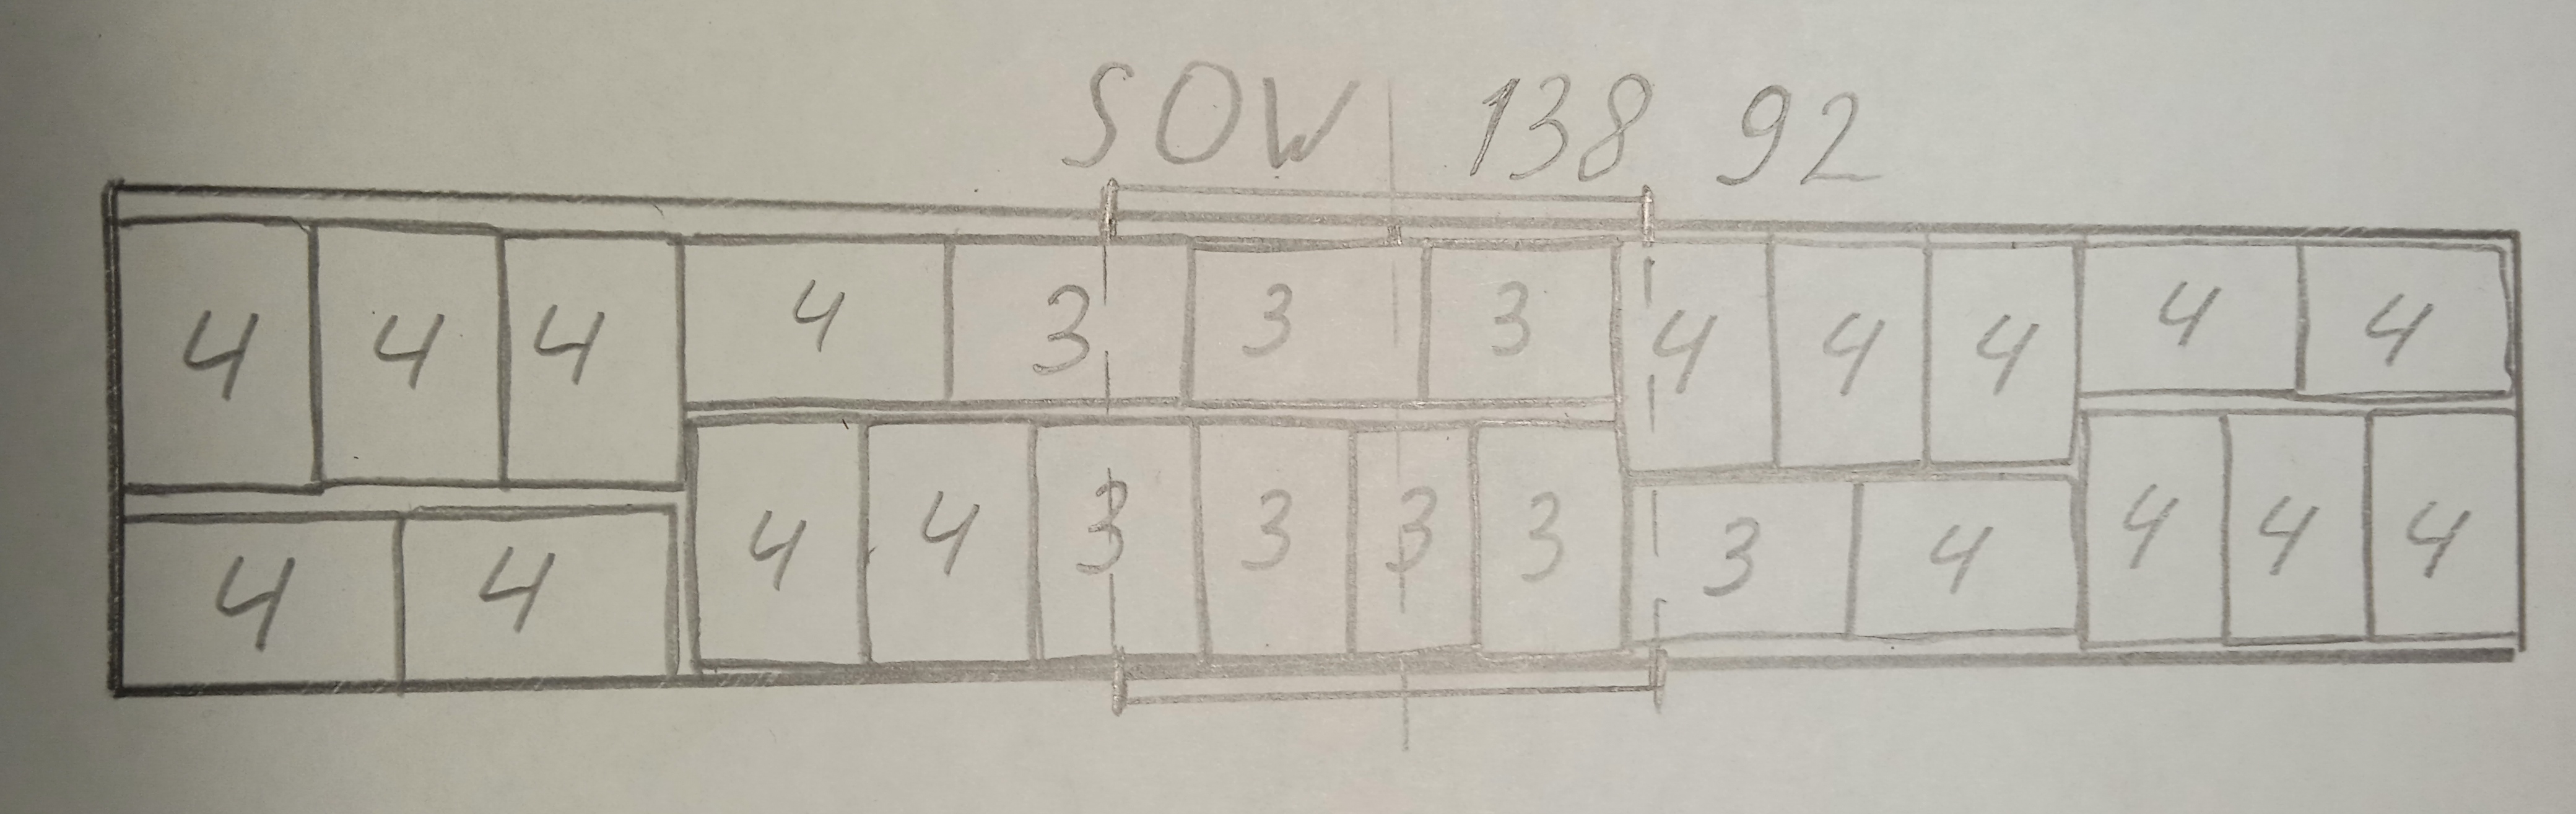 SOW 138 92
4 4 4 4 3 3 3 4 4 4 4 4
4 4 4 4 3 3 3 3 3 4 4 4 4